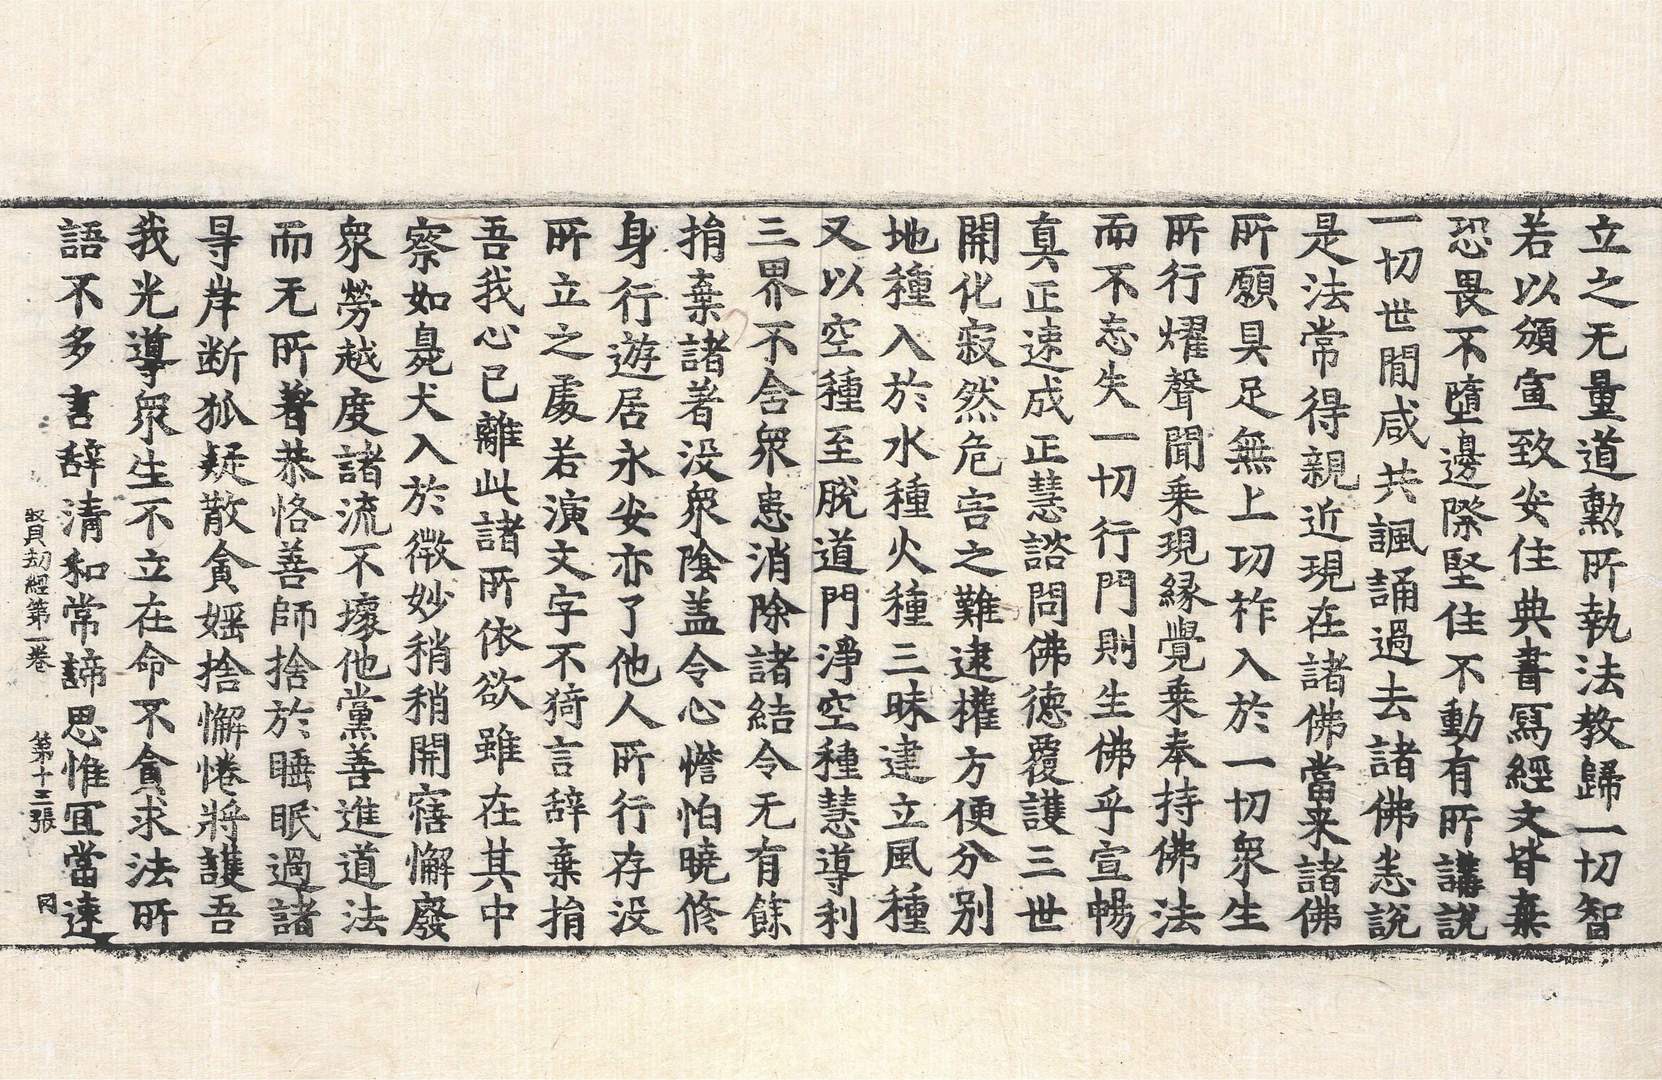 立之无量道勳所執法教歸一切智
若以頒宣致安住典書寫經文皆棄
恐畏不墮邊際堅住不動有所講說
一切世閒咸共諷誦過去諸佛悉說
是法常得親近現在諸佛當来諸佛
所願具足無上功祚入於一切衆生
所行燿聲聞乗現縁覺乗奉持佛法
而不忘失一切行門則生佛乎宣暢
真正速成正慧諮問佛德覆護三世
開化寂然危害之難逮權方便分別
地種入於水種火種三昧建立風種
又以空種至脱道門淨空種慧導利
三界不舍衆患消除諸結令无有餘
捐棄諸著没衆陰盖令心憺怕曉修
身行遊居永安亦了他人所行存没
所立之處若演文字不猗言辞棄捐
吾我心已離此諸所依欲雖在其中
察如臭犬入於微妙稍稍開寤懈廢
衆勞越度諸流不壞他黨善進道法
而无所著恭恪善師捨於睡眠過諸
㝵岸断狐疑散貪婬捨懈惓將護吾
我光導衆生不立在命不貪求法所
語不多言辞清和常諦思惟宜當速
賢劫經第一卷 第十三張 冈